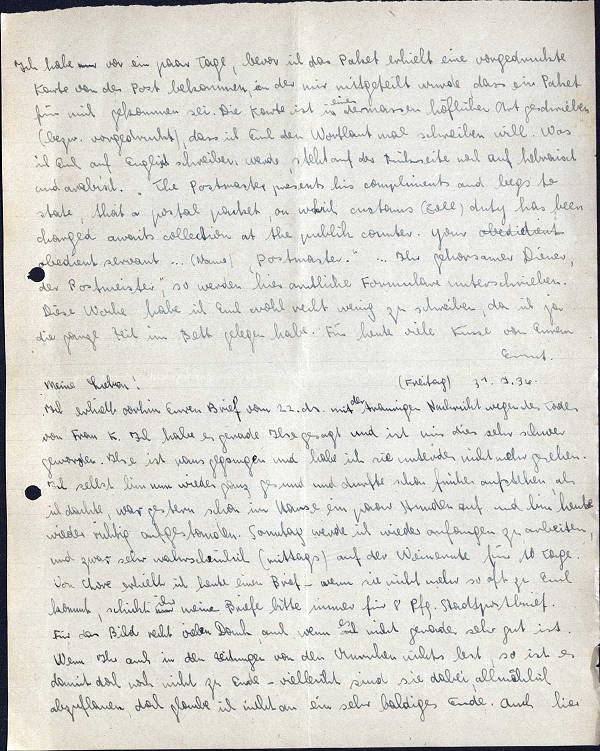 Ich habe vor ein paar Tage, bevor ich das Paket erhielt eine vorgedruckte
Karte von der Post bekommen, in der mir mitgeteilt wurde dass ein Paket
für mich gekommen sei. Die Karte ist in einer dermassen höflicher Art geschrieben
(bezw. vorgedruckt), dass ich Euch den Wortlaut mal schreiben will. Was
ich Euch auf Englisch schreiben werde, steht auf der Rückseite noch auf hebraeisch
und arabisch. „The Postmaster presents his compliments and begs to
state, that a postal packet, on which customs (Zoll) duty has been
charged awaits collection at the publik counter. your obedicient
obedient servant ... (Name) "Postmaster." ... Ihr gehorsamer Diener,
der Postmeister", so werden hier amtliche Formulare unterschrieben.
Diese Woche habe ich Euch wohl recht wenig zu schreiben, da ich ja
die ganze Zeit im Bett gelegen habe. Für heute viele Küsse von Eurem
Ernst.
Meine Lieben! (Freitag) 31. 7. 36.
Ich erhielt vorhin Euren Brief vom 22. ds. mit der traurigen Nachricht wegen des Todes
von Frau K. Ich habe es gerade Ilse gesagt und ist mir dies sehr schwer
geworden. Ilse ist raus gegangen und habe ich sie unterdes nicht mehr gesehen.
Ich selbst bin nun wieder ganz gesund und durfte schon früher aufstehen, als
ich dachte, war gestern schon im Hause ein paar Stunden auf und bin heute
wieder richtig aufgestanden. Sonntag werde ich wieder anfangen zu arbeiten,
und zwar sehr wahrscheinlich (mittags) auf der Weinernte für 10 Tage.
Von erhielt ich heute einen Brief – wenn sie nicht mehr so oft zu Euch
kommt, schickt ihr meine Briefe bitte immer für 8 Pfg. Stadtpostbrief.
Für das Bild recht vielen Dank auch wenn es nicht gerade sehr gut ist.
Wenn Ihr auch in den Zeitungen von den Unruhen nichts lest, so ist es
damit doch noch nicht zu Ende – vielleicht sind sie dabei, allmählich
abzuflauen, doch glaube ich nicht an ein sehr baldiges Ende. Auch hier